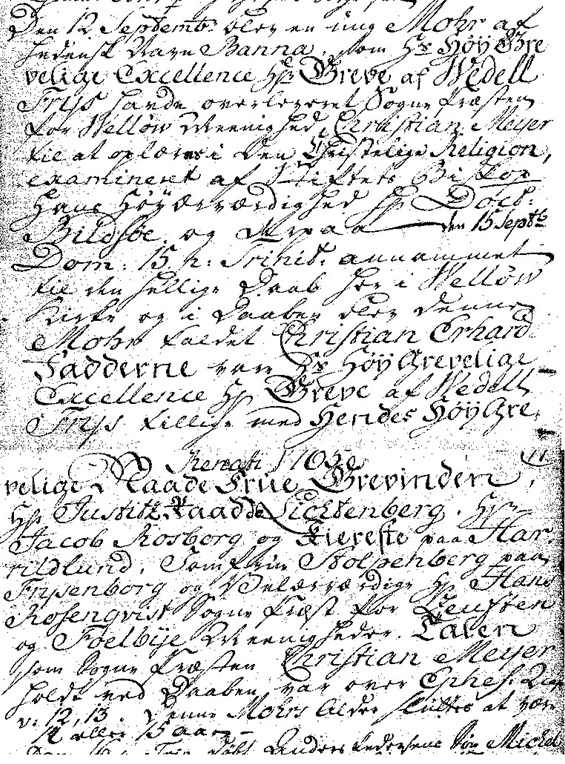 Den 12 Septemb: blev en ung Mohr af
Hedensk Navn Banna, som Hs Høy Gre
velige Excellence Hr Greve af Wedell
Friis havde overleveret Sogne Præsten
for Welløw Meenighed, Christian Meyer
til at oplæres i den Christelige Religion,
examineret af Stiftets Biskop
Hans Høyærværdighed Hr Doct:
Bildsøe, og derpaa den 15 Septb:
Dom: 15 p: Trinit: annammet
til den hellige Daab her i Welløw
Kirke og i Daaben blev denne
Mohr kaldet Christian Erhard
Fadderne var Hs Høy Grevelige
Excellence Hr Greve af Wedell
Friis tillige med Hendes Høy Gre,
11
velige Naade Frue Grevinden,
Hr Justitz Raad Lichtenberg, Hr
Jacob Rosberg og Kiereste paa Har
ridlund, Jomfrue Stolpenberg paa
Frisenborg og Velærværdige Hr Hans
Rosenqvist Sogne Præst for Leufsten
og Foelbÿe Meenigheder. Talen
som Sogne Præsten Christian Meyer
holdt ved Daaben, var over Ephes:
v: 12, 13. Denne Mohrs Alder sluttes at være
14 eller 15 aar
Anders Pedersens Søn Michel